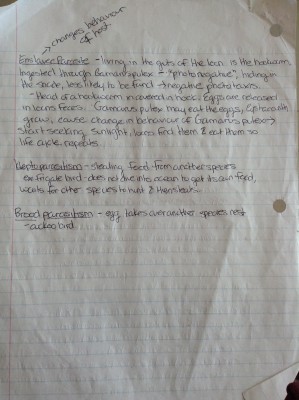 changes behaviour
of host
Enslaver Parasite - living in the guts of the tern is the hookworm
Ingested through Gamarus pulex - "photonegative", hiding in
the shade, less likely to be found → negative phototaxis
- Head of a hookworm is covered in hooks. Eggs are released
in terns feces. Gamarus pulex may eat the eggs,
grow, cause change in behaviour of Gamarus pulex →
start seeking sunlight, terns find them & eat them so
life cycle repeats.
Kleptoparasitism - stealing food from another species
ex frigate bird - does not dive into ocean to get its own food,
waits for other species to hunt & then steals.
Brood parasitism - egg takes over another species nest
- cuckoo bird